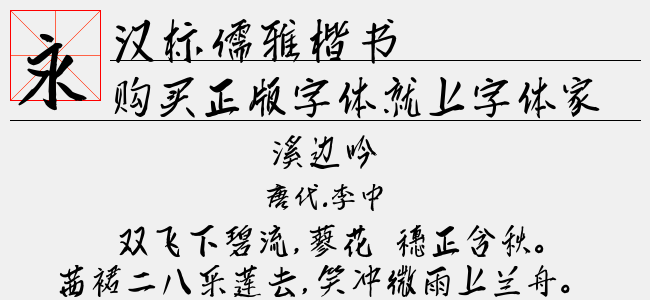 永
汉标儒雅楷书
购买正版字体就上字体家
溪边吟
唐代.李中
双飞下碧流,蓼花 穗正含秋。
茜裙二八采莲去,笑冲微雨上兰舟。